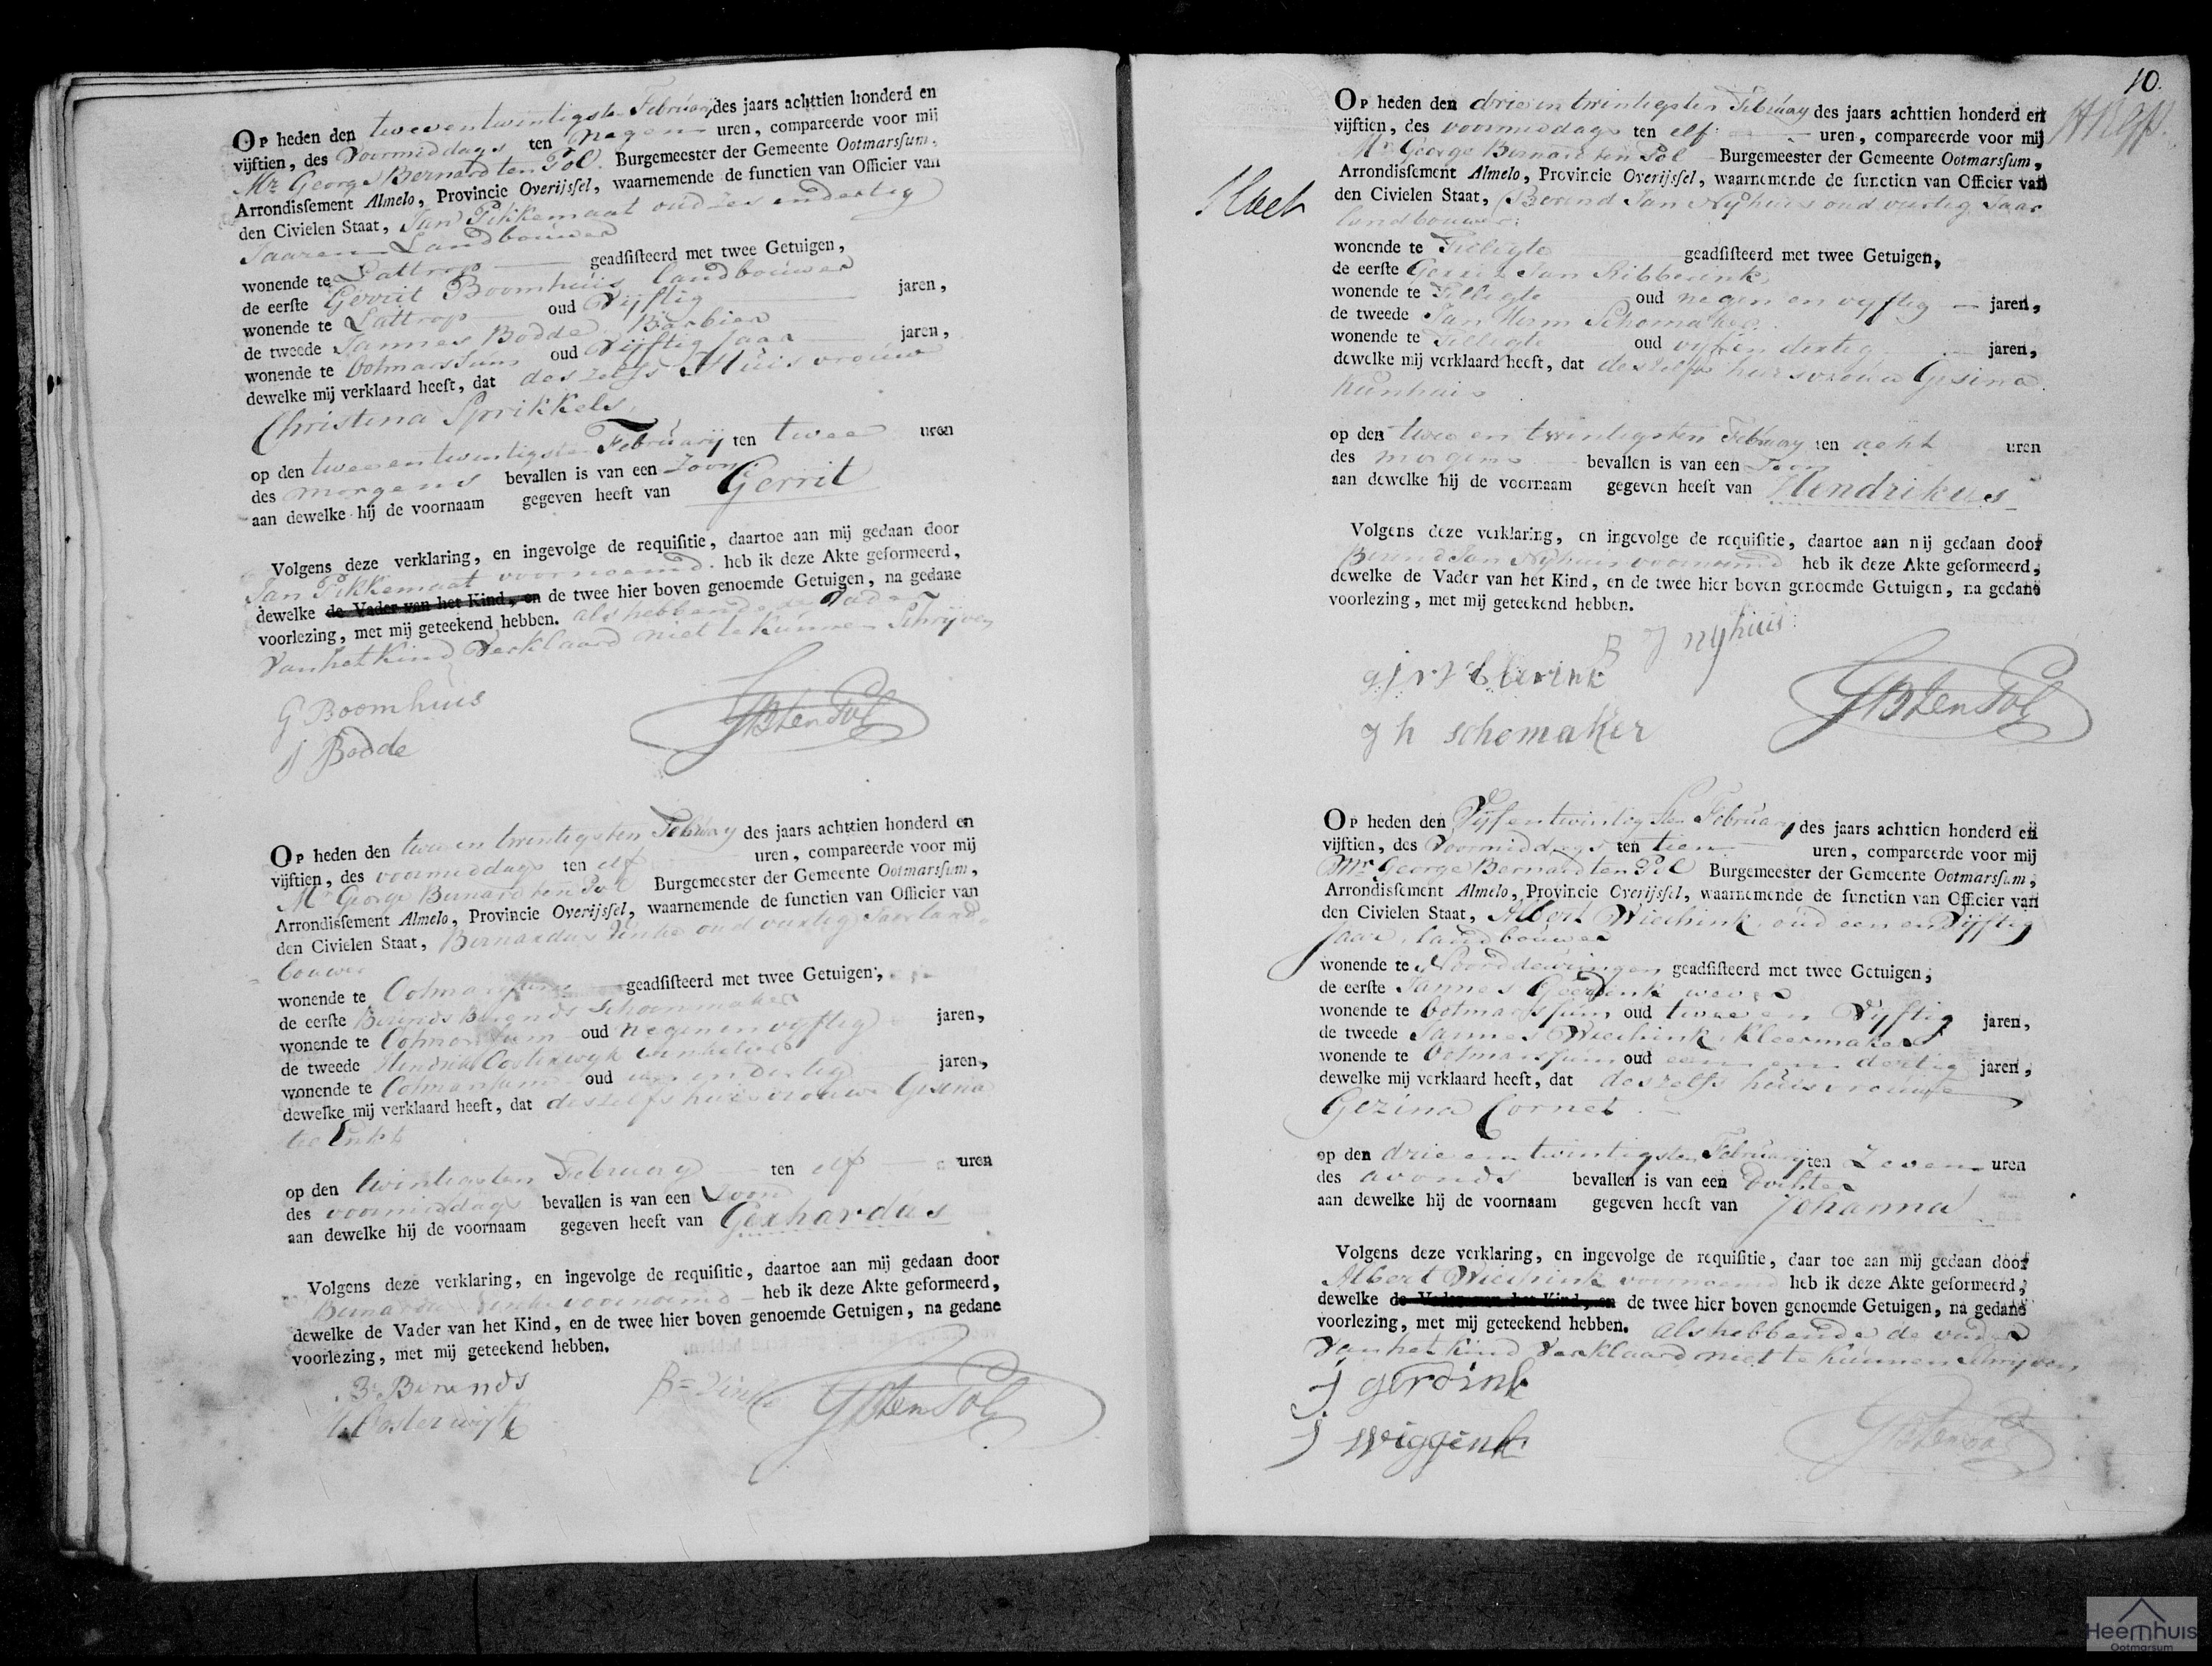 Op heden den tweeentwintigsten Februarij des jaars achttien honderd en
vijftien, des Voormiddags ten negen uren, compareerde voor mij
Mr. George Bernard ten Pol. Burgemeester der Gemeente Ootmarsſum,
Arrondisſement Almelo, Provincie Overijsſel, waarnemende de functien van Officier van
den Civielen Staat, Jan Pikkemaat oud zes en dertig
Jaaren Landbouwer
wonende te Lattrop geadſiſteerd met twee Getuigen,
de eerſte Gerrit Boomhuis landbouwer
wonende te Lattrop oud Vijftig jaren,
de tweede Jannes Bodde Barbier
wonende te Ootmarssum oud Vijftig Jaar jaren,
dewelke mij verklaard heeft, dat deszelfs Huisvrouw
Christina Sprikkels
op den tweeentwintigsten Februarij ten twee uren
des morgens bevallen is van een Zoon
aan dewelke hij de voornaam gegeven heeft van Gerrit
Volgens deze verklaring, en ingevolge de requiſitie, daartoe aan mij gedaan door
Jan Pikkemaat voornoemd. heb ik deze Akte geformeerd,
dewelke de Vader van het Kind, en de twee hier boven genoemde Getuigen, na gedane
voorlezing, met mij geteekend hebben. als hebbende de Vader
van het Kind Verklaard niet te kunnen Schrijven
G Boomhuis
j Bodde
GB ten Pol
Op heden den twee en twintigsten February des jaars achttien honderd en
vijftien, des voormiddags ten elf uren, compareerde voor mij
Mr George Bernard ten Pol Burgemeester der Gemeente Ootmarsſum,
Arrondisſement Almelo, Provincie Overijsſel, waarnemende de functien van Officier van
den Civielen Staat, Bernardus oud veertig Jaar land
bouwer
wonende te Ootmarssum geadſiſteerd met twee Getuigen,
de eerſte Berends Schoenmaker
wonende te Ootmarssum oud negen en vyftig jaren,
de tweede Hendrik Oosterwyk winkelier
wonende te Ootmarssum oud en dertig jaren,
dewelke mij verklaard heeft, dat deszelfs huisvrouwe Gesina
op den twintigsten February ten elf uren
des voormiddags bevallen is van een Zoon
aan dewelke hij de voornaam gegeven heeft van Gerhardus
Volgens deze verklaring, en ingevolge de requiſitie, daartoe aan mij gedaan door
Bernardus voornoemd heb ik deze Akte geformeerd,
dewelke de Vader van het Kind, en de twee hier boven genoemde Getuigen, na gedane
voorlezing, met mij geteekend hebben.
B Berends
H Oosterwijk
GB ten Pol
10.
Op heden den drie en twintigsten February des jaars achttien honderd en
vijftien, des voormiddags ten elf uren, compareerde voor mij
Mr George Bernard ten Pol Burgemeester der Gemeente Ootmarsſum,
Arrondisſement Almelo, Provincie Overijsſel, waarnemende de functien van Officier van
den Civielen Staat, Berend Jan Nyhuis oud veertig Jaar
landbouwer
wonende te Tilligte geadſiſteerd met twee Getuigen,
de eerſte Gerrit Jan Ribberink
wonende te Tilligte oud negen en vyftig jaren,
de tweede Jan Herm Schomaker
wonende te Tilligte oud vyf en dertig jaren,
dewelke mij verklaard heeft, dat deszelfs huisvrouw Gesina
op den twee en twintigsten February ten acht uren
des morgens bevallen is van een Zoon
aan dewelke hij de voornaam gegeven heeft van Hendrikus
Volgens deze verklaring, en ingevolge de requiſitie, daartoe aan mij gedaan door
Berend Jan Nyhuis voornoemd heb ik deze Akte geformeerd,
dewelke de Vader van het Kind, en de twee hier boven genoemde Getuigen, na gedane
voorlezing, met mij geteekend hebben.
B J nyhuis
g j ribberink
j h schomaker
GB ten Pol
Op heden den Vijfentwintigsten February des jaars achttien honderd en
vijftien, des Voormiddags ten tien uren, compareerde voor mij
Mr George Bernard ten Pol Burgemeester der Gemeente Ootmarsſum,
Arrondisſement Almelo, Provincie Overijsſel, waarnemende de functien van Officier van
den Civielen Staat, Albert Wiechink, oud een en Vyftig
Jaar, landbouwer
wonende te Noorddeurningen geadſiſteerd met twee Getuigen,
de eerſte Jannes Geerdink wever
wonende te Ootmarssum oud twee en Vyftig jaren,
de tweede Jannes Wiechink, Kleermaker
wonende te Ootmarssum oud een en dertig jaren,
dewelke mij verklaard heeft, dat deszelfs huisvrouwe
Gezina Cornet
op den drie en twintigsten Februarij ten Zeven uren
des avonds bevallen is van een Dochter
aan dewelke hij de voornaam gegeven heeft van Johanna
Volgens deze verklaring, en ingevolge de requiſitie, daar toe aan mij gedaan door
Albert Wiechink voornoemd heb ik deze Akte geformeerd,
dewelke de Vader van het Kind, en de twee hier boven genoemde Getuigen, na gedane
voorlezing, met mij geteekend hebben. als hebbende de vader
Van het kind Verklaard niet te kunnen schrijven
J gerdink
J wiggenk
GB ten Pol
Heemhuis
Ootmarsum